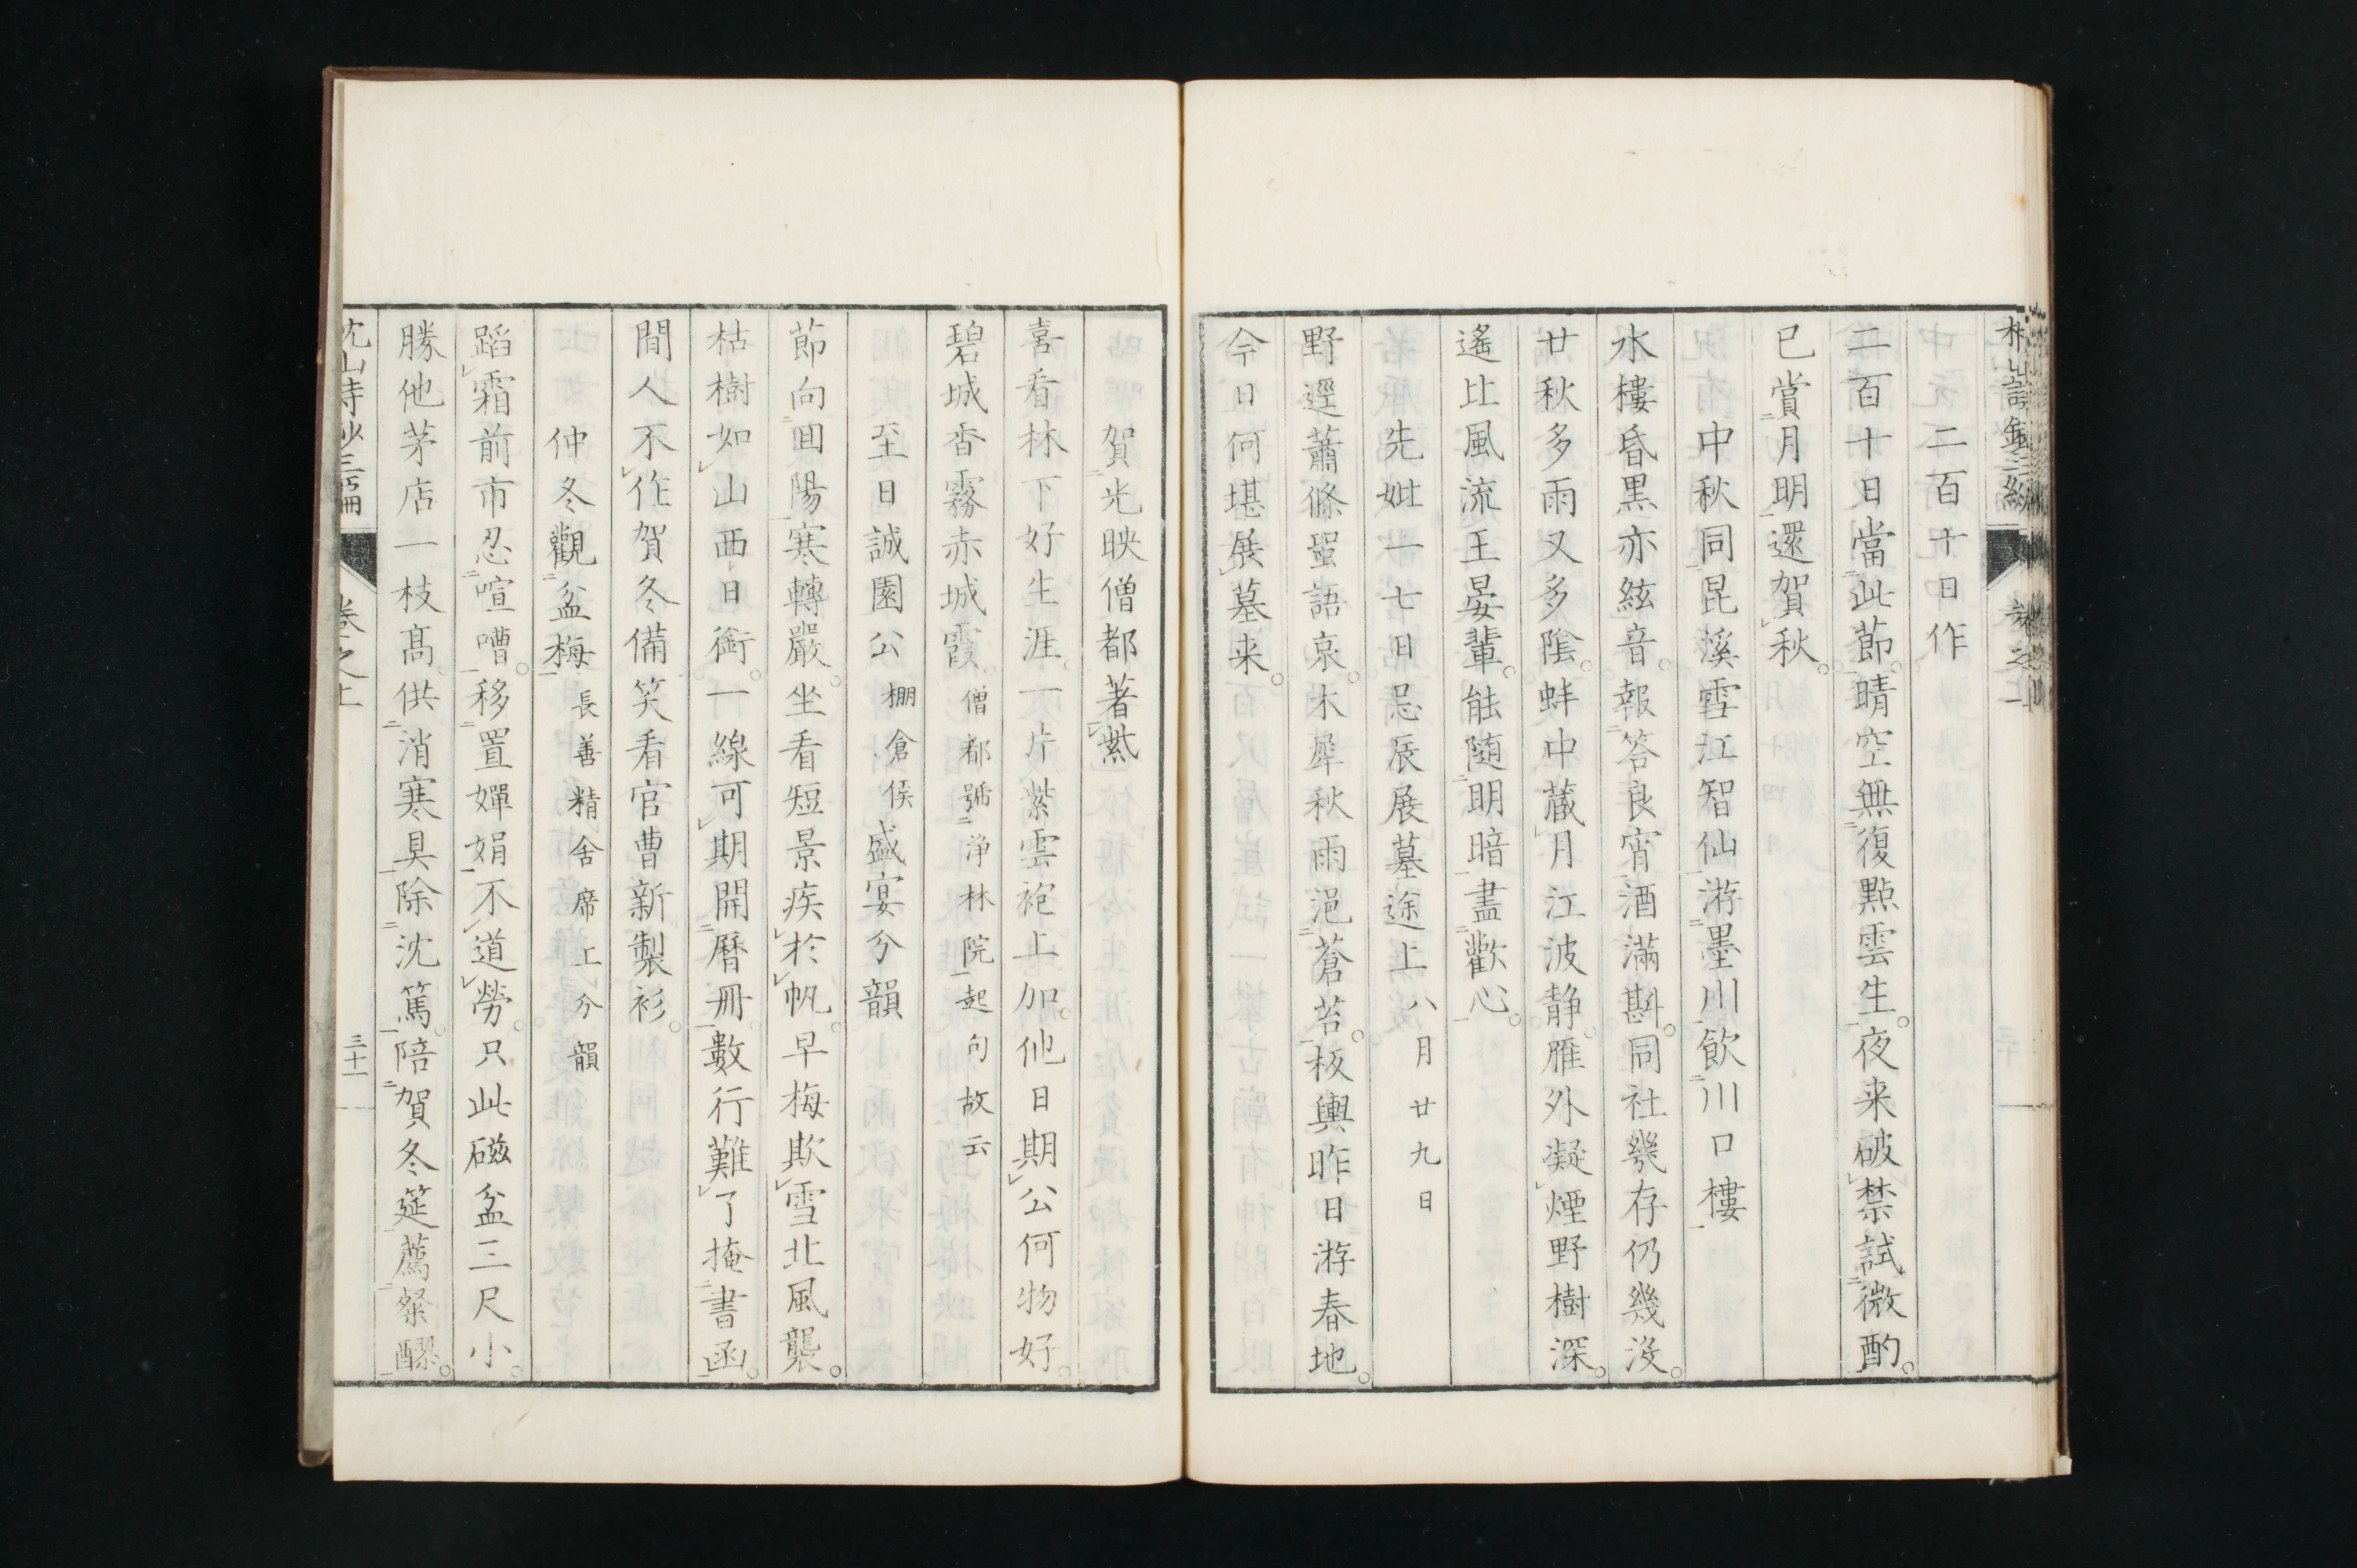 二百十日作
二百十日當此節。晴空無復點雲生。夜来破禁試微酌。
已賞月明還賀秋。
中秋同昆溪雪江智仙游墨川飲川口樓
水樓昏黒亦絃音。報答良宵酒滿斟。同社幾存仍幾没。
廿秋多雨又多陰。蚌中蔵月江波静。雁外凝煙野樹深。
遙比風流王晏輩。能随明暗盡歡心。
先妣一七日忌辰展墓途上 八月廿九日
野逕蕭條蛩語哀。木犀秋雨浥蒼苔。板輿昨日游春地。
今日何堪展墓来。
賀光映僧都著紫
喜看林下好生涯。一片紫雲袍上加。他日期公何物好。
碧城杳霧赤城霞 僧都號浄林院起句故云
至日誠園公 棚倉侯 盛宴分韻
節向回陽寒轉嚴。坐看短景疾於帆。早梅欺雪北風襲。
枯樹如山西日銜。一線可期開暦冊。數行難了掩書函。
閒人不作賀冬備。笑看官曹新製衫。
仲冬觀盆梅 長善精舍席上分韻
蹈霜前市忍喧嘈。移置嬋娟不道勞。只此磁盆三尺小。
勝他茅店一枝髙。供消寒具除沈篤。陪賀冬筵薦粲醪。
卷之上
三十一